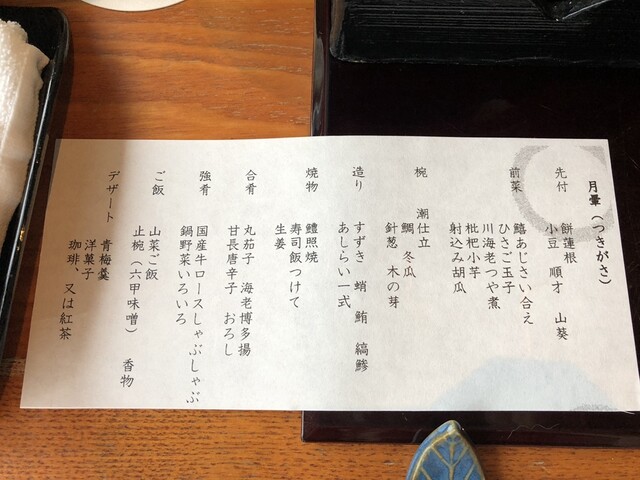 月暈（つきがさ）
先付　餅蓮根
小豆　順才　山葵
前菜　鱚あじさい合え
ひさご玉子
川海老つや煮
枇杷小芋
射込み胡瓜
椀　潮仕立
鯛　冬瓜
針葱　木の芽
造り　すずき　蛸　鮪　縞鯵
あしらい一式
焼物　鱧照焼
寿司飯つけて
生姜
合肴　丸茄子　海老博多揚
甘長唐辛子　おろし
強肴　国産牛ロースしゃぶしゃぶ
鍋野菜いろいろ
ご飯　山菜ご飯
止椀（六甲味噌）　香物
デザート　青梅羹
洋菓子
珈琲、又は紅茶